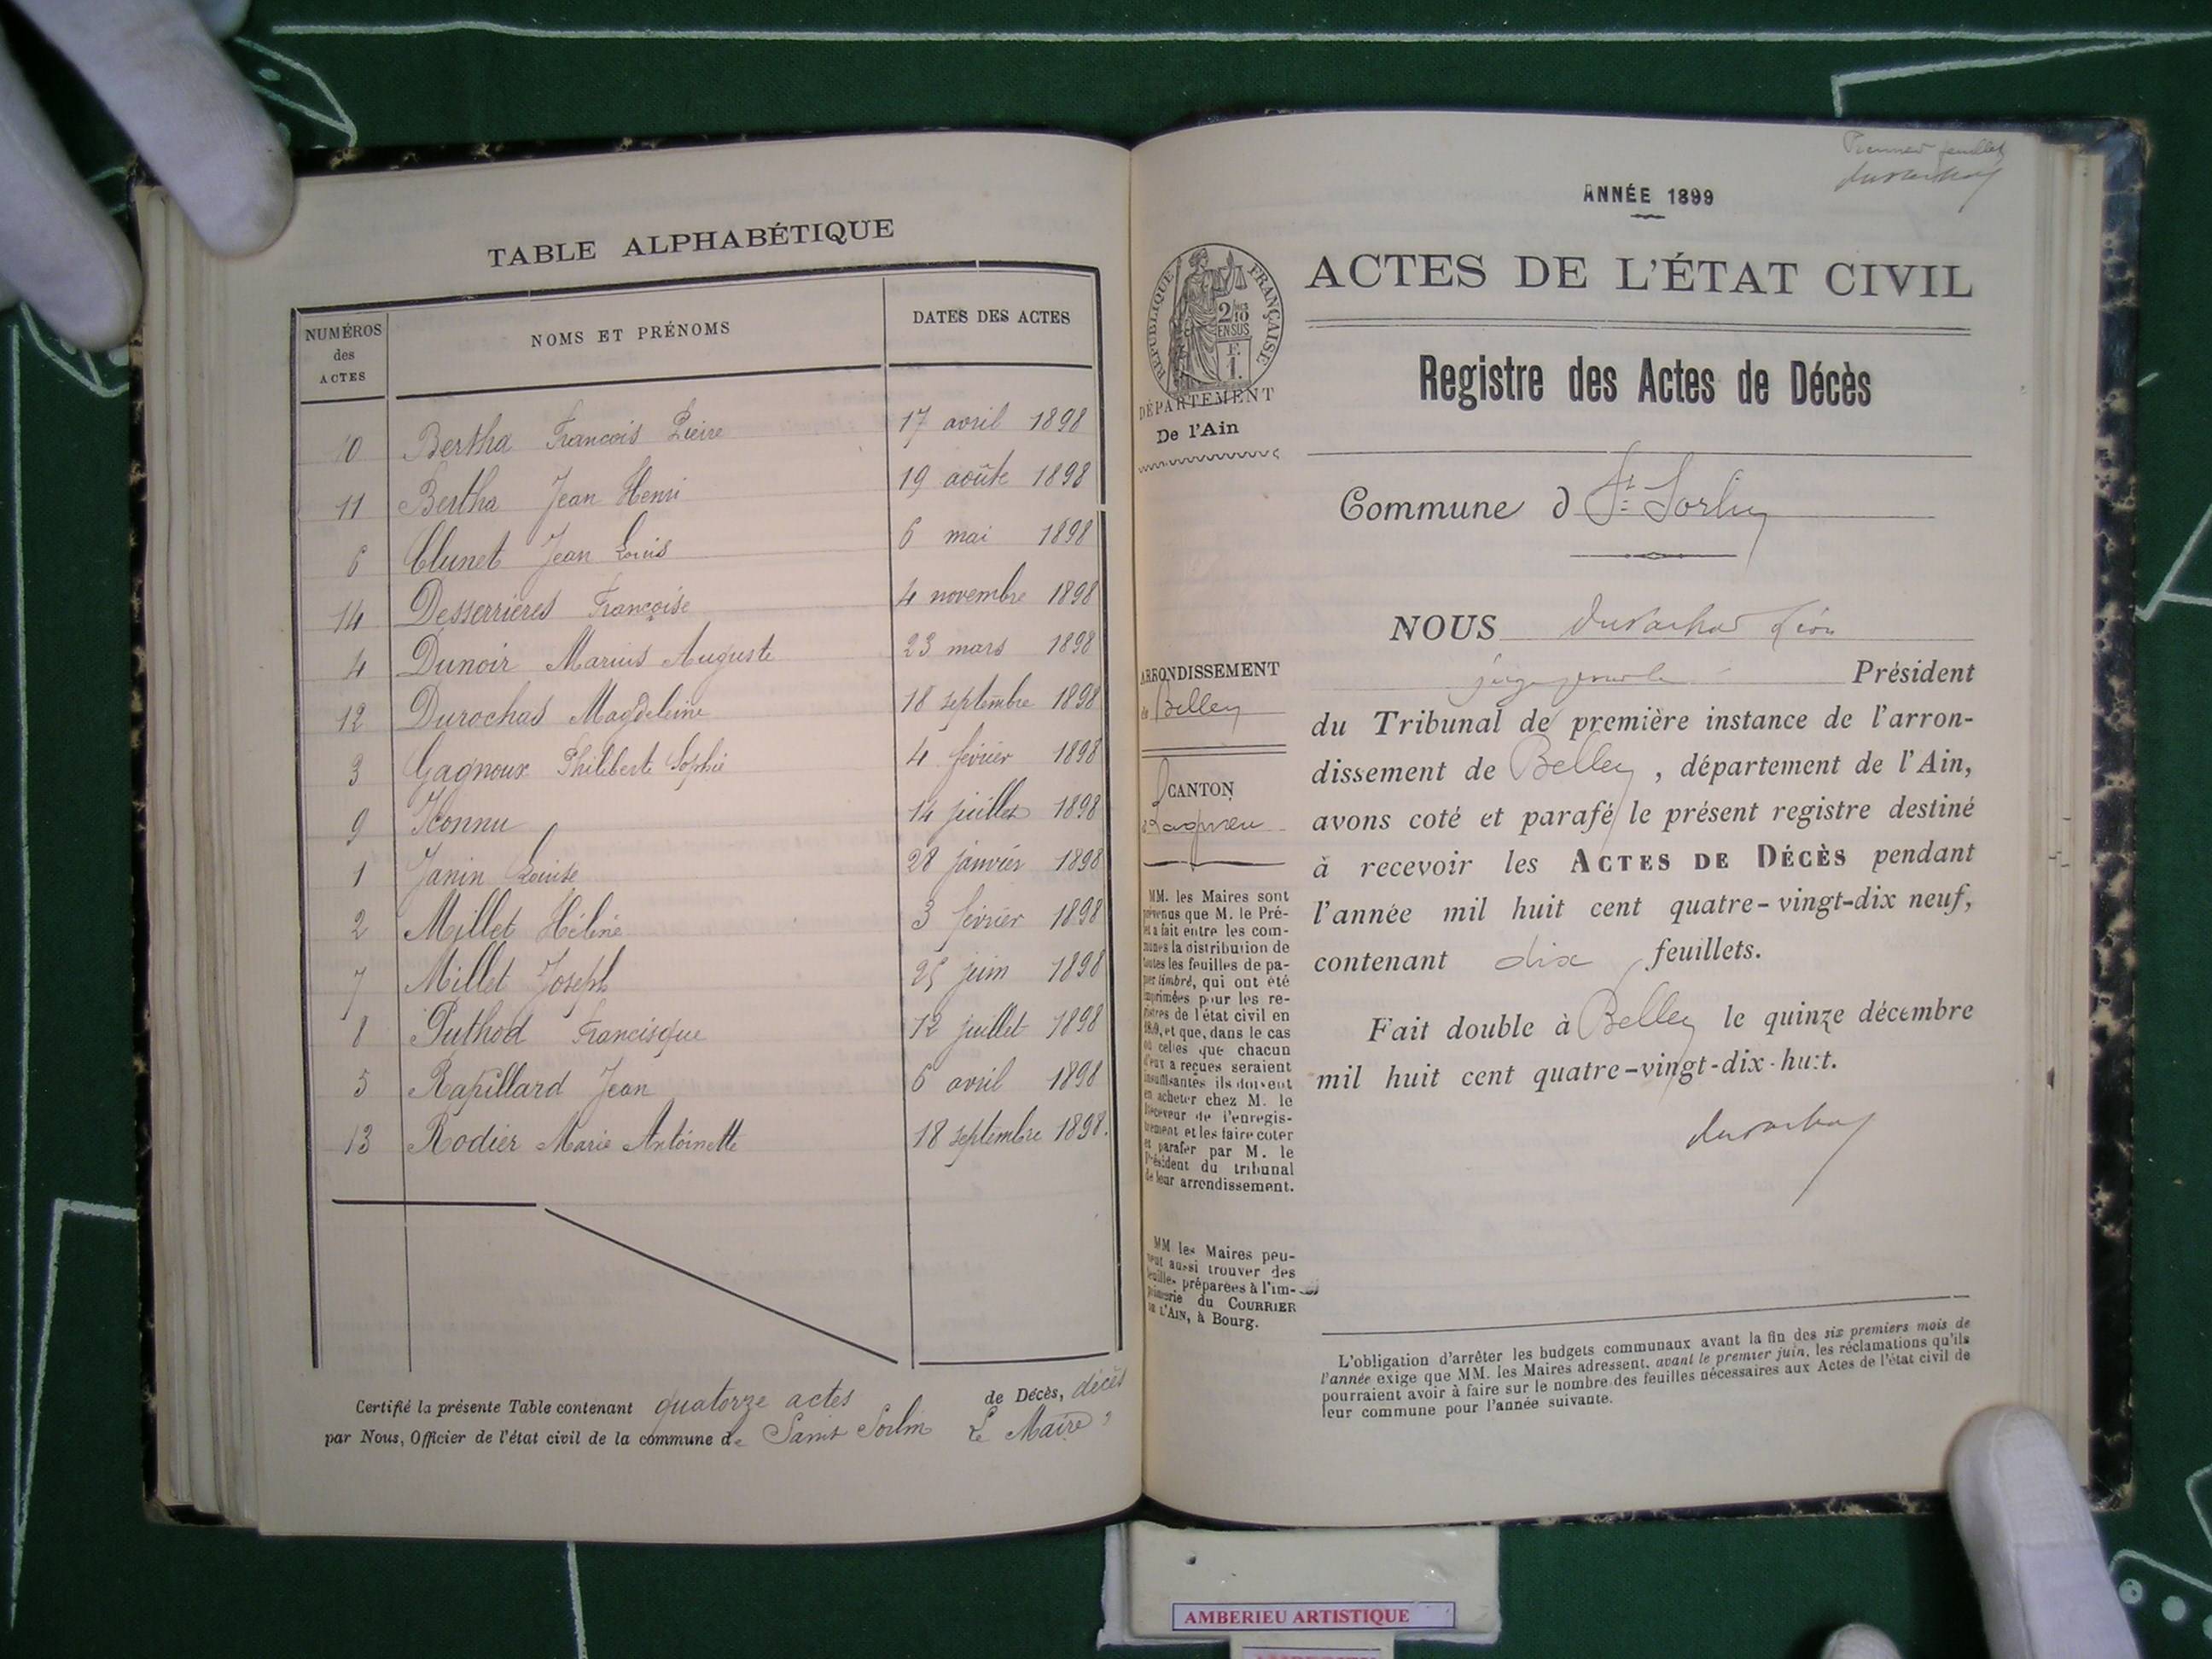 TABLE ALPHABÉTIQUE
NUMÉROS des ACTES
NOMS ET PRÉNOMS
DATES DES ACTES
10 Bertha François Pierre 17 avril 1898
11 Bertha Jean Henri 19 août 1898
6 Clunet Jean Louis 6 mai 1898
14 Desserrières Françoise 4 novembre 1898
4 Dunoir Marius Auguste 23 mars 1898
12 Durochas Magdeleine 18 septembre 1898
3 Gagnoux Philiberte Sophie 4 février 1898
9 14 juillet 1898
1 Janin Louise 28 janvier 1898
2 Millet Hélène 3 février 1898
7 Millet Joseph 25 juin 1898
8 Puthod Francisque 12 juillet 1898
5 Rapillard Jean 6 avril 1898
13 Rodier Marie Antoinette 18 septembre 1898.
Certifié la présente Table contenant quatorze actes de Décès, décès
par Nous, Officier de l'état civil de la commune de Saint Sorlin Le Maire
Premier feuillet
ANNÉE 1899
RÉPUBLIQUE FRANÇAISE
2/10
EN SUS
F.
1.
ACTES DE L'ÉTAT CIVIL
DÉPARTEMENT
De l'Ain
Registre des Actes de Décès
Commune d St Sorlin
NOUS Léon
Président
ARRONDISSEMENT
de Belley
CANTON
Lagnieu
du Tribunal de première instance de l'arron-
dissement de Belley, département de l'Ain,
avons coté et parafé le présent registre destiné
à recevoir les ACTES DE DÉCÈS pendant
l'année mil huit cent quatre-vingt-dix neuf,
contenant dix feuillets.
Fait double à Belley le quinze décembre
mil huit cent quatre-vingt-dix-huit.
MM. les Maires sont
prévenus que M. le Pré-
fet a fait entre les com-
munes la distribution de
toutes les feuilles de pa-
pier timbré, qui ont été
imprimées pour les re-
gistres de l'état civil en
1899, et que, dans le cas
où celles que chacun
d'eux a reçues seraient
insuffisantes ils doivent
en acheter chez M. le
Receveur de l'enregis-
trement et les faire coter
et parafer par M. le
Président du tribunal
de leur arrondissement.
MM les Maires peu-
vent aussi trouver des
feuilles préparées à l'im-
primerie du COURRIER
DE L'AIN, à Bourg.
L'obligation d'arrêter les budgets communaux avant la fin des six premiers mois de
l'année exige que MM. les Maires adressent, avant le premier juin, les réclamations qu'ils
pourraient avoir à faire sur le nombre des feuilles nécessaires aux Actes de l'état civil de
leur commune pour l'année suivante.
AMBERIEU ARTISTIQUE